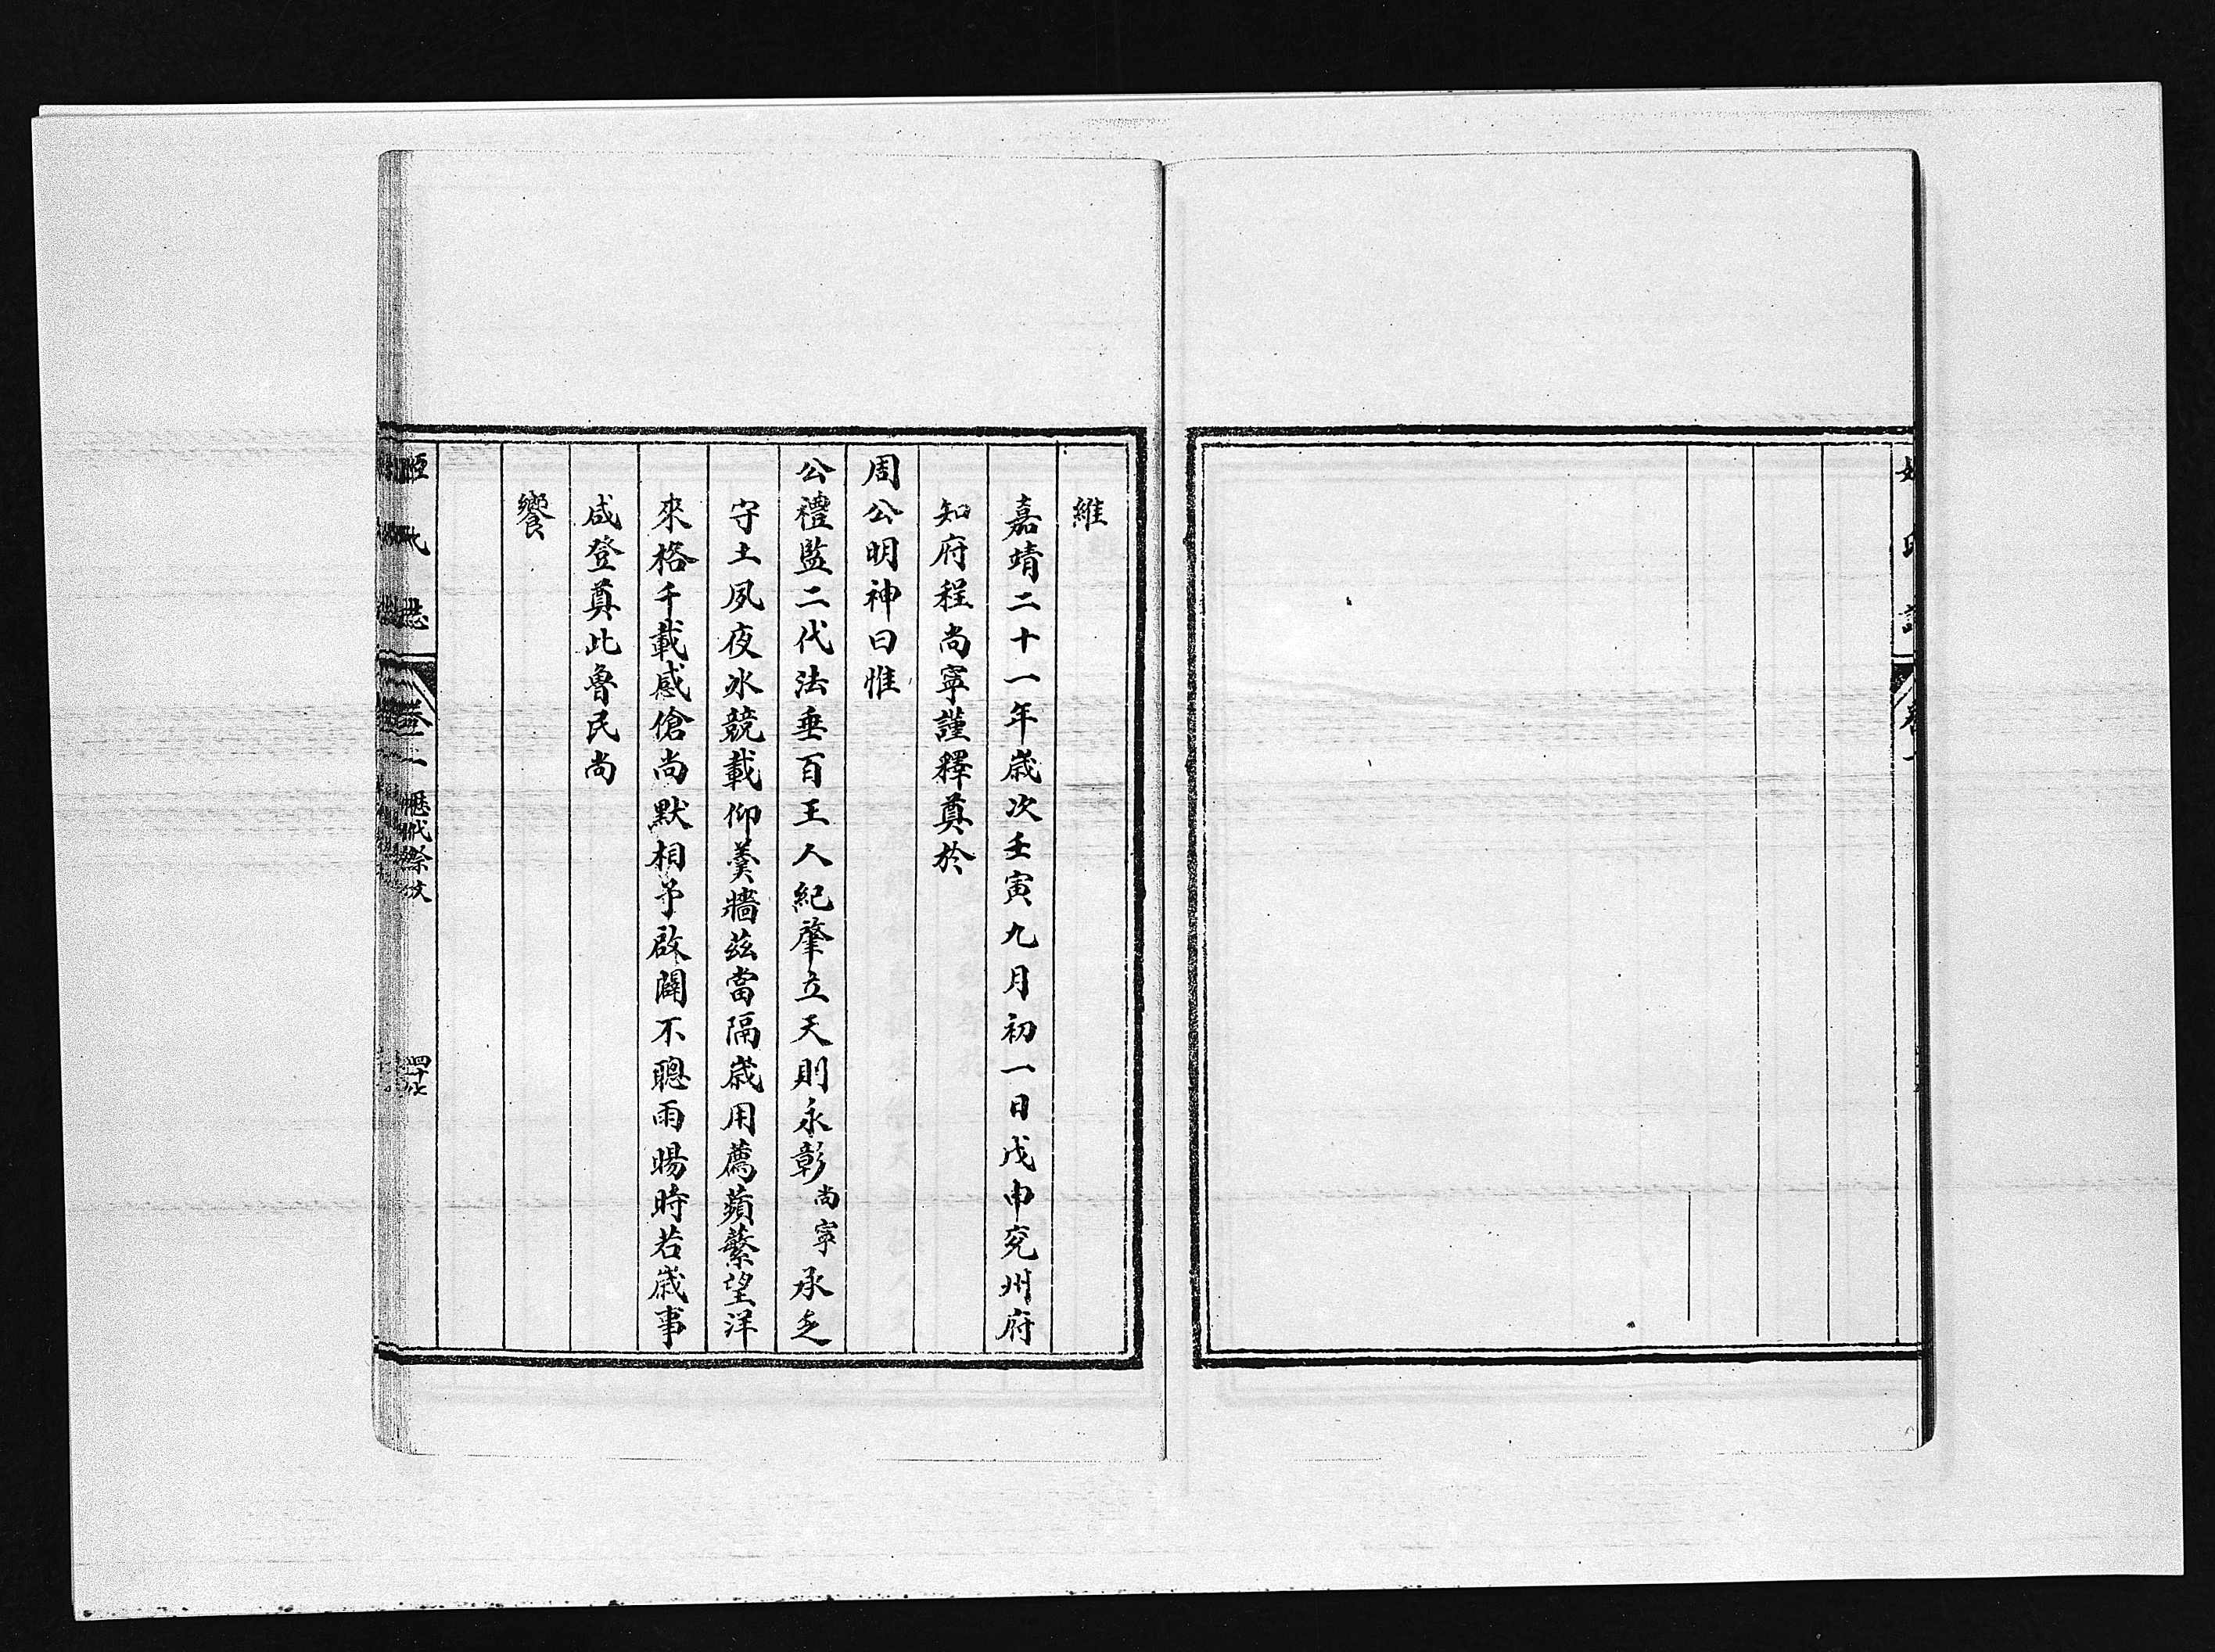 維
嘉靖二十一年歲次壬寅九月初一日戊申兖州府
知府程尚寧謹釋奠於
周公明神曰惟
公禮監二代法垂百王人紀肇立天則永彰尚寧承乏
守土夙夜氷競載仰羹牆茲當隔歲用薦蘋蘩望洋
來格千載感傖尚默相予啟闢不聰雨暘時若歲事
咸登奠此魯民尚
饗
歷代祭文
四十七